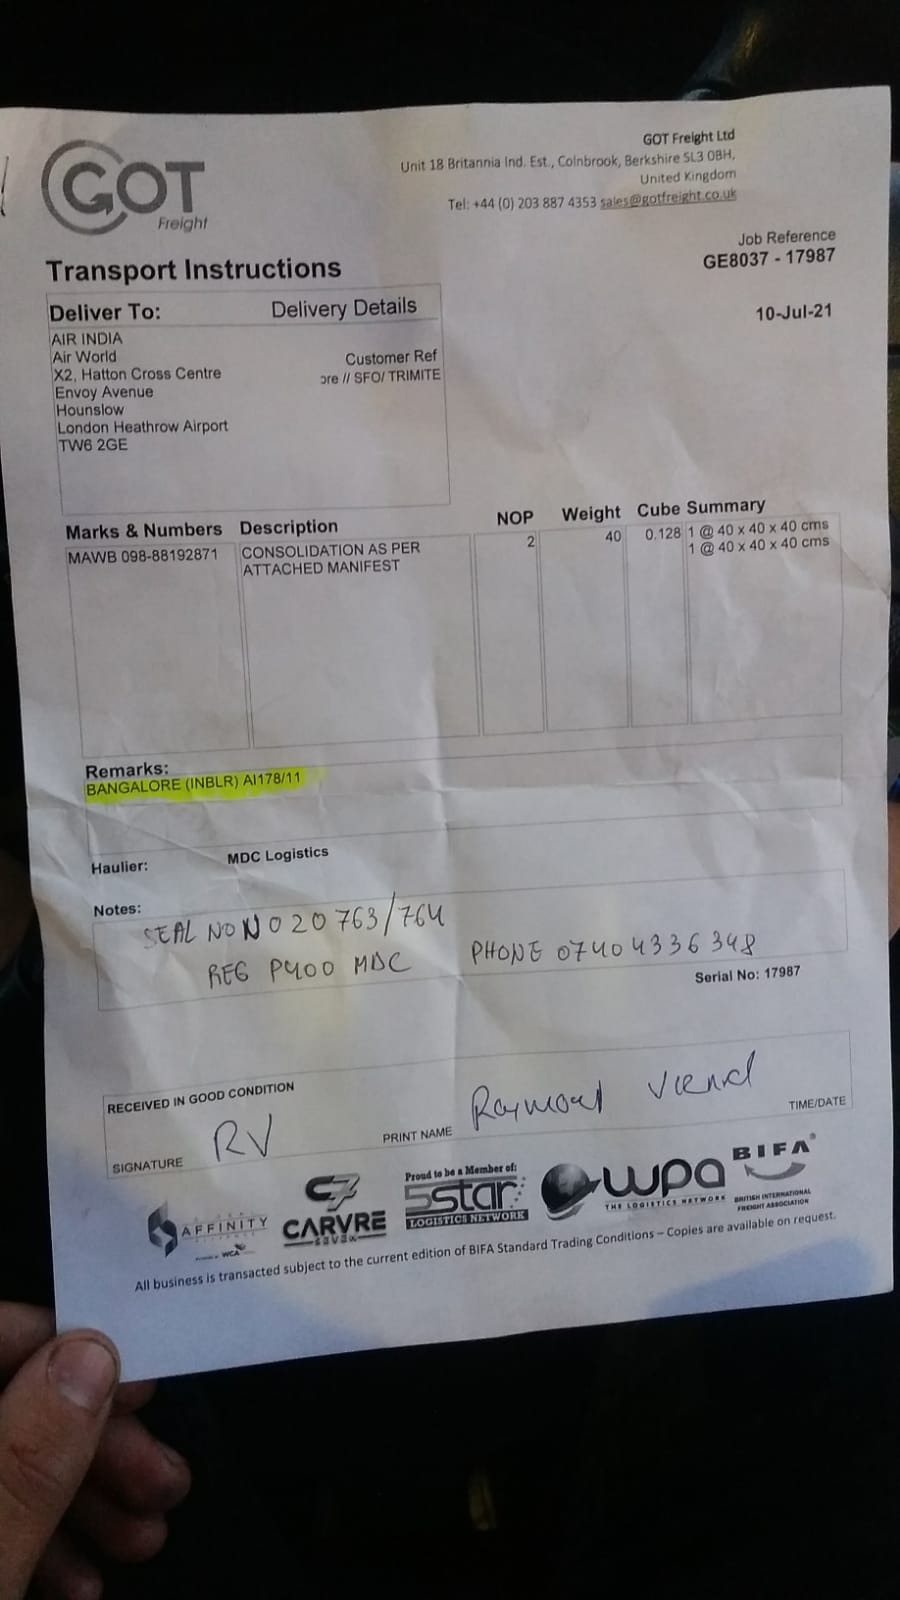 GOT
Freight
GOT Freight Ltd
Unit 18 Britannia Ind. Est., Colnbrook, Berkshire SL3 0BH,
United Kingdom
Tel: +44 (0) 203 887 4353 sales@gotfreight.co.uk
Job Reference
GE8037 - 17987
10-Jul-21
Transport Instructions
Deliver To: Delivery Details
AIR INDIA
Air World
X2, Hatton Cross Centre
Envoy Avenue
Hounslow
London Heathrow Airport
TW6 2GE
Customer Ref
ore // SFO/ TRIMITE
Marks & Numbers Description NOP Weight Cube Summary
MAWB 098-88192871 CONSOLIDATION AS PER 2 40 0.128 1 @ 40 x 40 x 40 cms
ATTACHED MANIFEST 1 @ 40 x 40 x 40 cms
Remarks:
BANGALORE (INBLR) AI178/11
Haulier: MDC Logistics
Notes:
SEAL NO NO 20763/764
REG P400 MDC PHONE 07404336348
Serial No: 17987
RECEIVED IN GOOD CONDITION
SIGNATURE RV PRINT NAME Raymond TIME/DATE
AFFINITY
WCA
C7
CARVRE
SEVEN
Proud to be a Member of:
5star
LOGISTICS NETWORK
wpa
THE LOGISTICS NETWORK
BIFA®
BRITISH INTERNATIONAL
FREIGHT ASSOCIATION
All business is transacted subject to the current edition of BIFA Standard Trading Conditions – Copies are available on request.